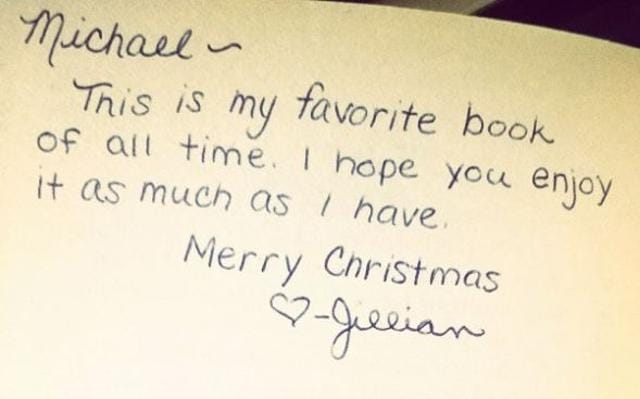 Michael ~
This is my favorite book
of all time. I hope you enjoy
it as much as I have.
Merry Christmas
♡-Jillian